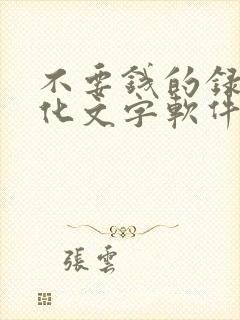 不要錢的録
化文字軟件
張雲